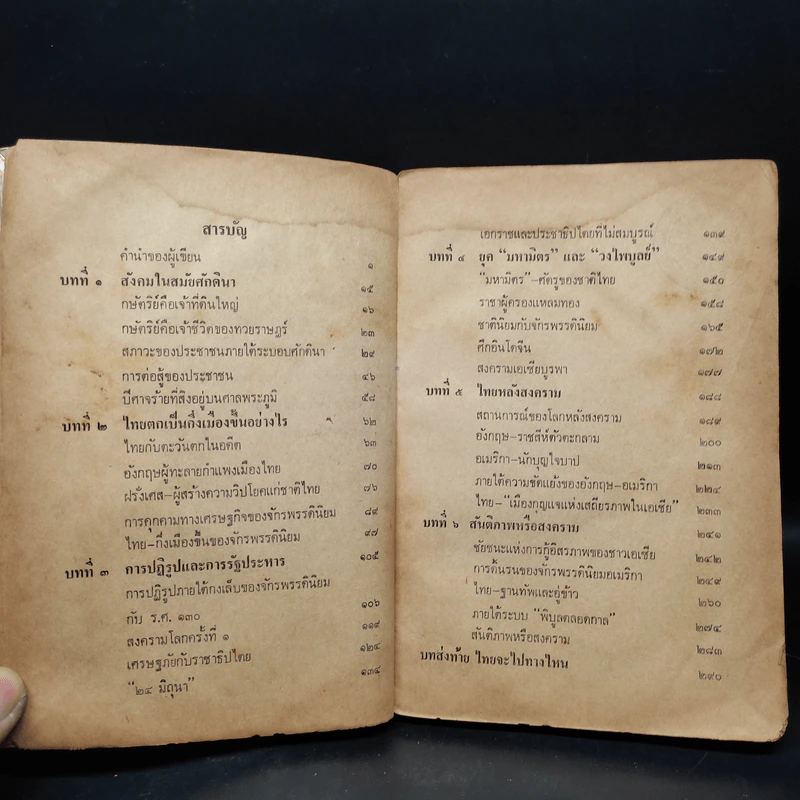 สารบัญ
คำนำของผู้เขียน ๑
บทที่ ๑ สังคมในสมัยศักดินา ๑๕
กษัตริย์คือเจ้าที่ดินใหญ่ ๑๖
กษัตริย์คือเจ้าชีวิตของทวยราษฎร์ ๒๓
สภาวะของประชาชนภายใต้ระบอบศักดินา ๒๙
การต่อสู้ของประชาชน ๔๖
ปีศาจร้ายที่สิงอยู่บนศาลพระภูมิ ๕๘
บทที่ ๒ ไทยตกเป็นกึ่งเมืองขึ้นอย่างไร ๖๒
ไทยกับตะวันตกในอดีต ๖๓
อังกฤษผู้ทะลายกำแพงเมืองไทย ๗๐
ฝรั่งเศส-ผู้สร้างความวิปโยคแก่ชาติไทย ๗๖
การคุกคามทางเศรษฐกิจของจักรพรรดินิยม ๘๙
ไทย-กึ่งเมืองขึ้นของจักรพรรดินิยม ๙๗
บทที่ ๓ การปฏิรูปและการรัฐประหาร ๑๐๕
การปฏิรูปภายใต้กงเล็บของจักรพรรดินิยม
กับ ร.ศ. ๑๓๐ ๑๐๖
สงครามโลกครั้งที่ ๑ ๑๑๙
เศรษฐภัยกับราชาธิปไตย ๑๒๔
"๒๔ มิถุนา" ๑๓๔
เอกราชและประชาธิปไตยที่ไม่สมบูรณ์ ๑๓๙
บทที่ ๔ ยุค "มหามิตร" และ "วงไพบูลย์" ๑๔๙
"มหามิตร"-ศัตรูของชาติไทย ๑๕๐
ราชาผู้ครองแหลมทอง ๑๕๘
ชาตินิยมกับจักรพรรดินิยม ๑๖๕
ศึกอินโดจีน ๑๗๒
สงครามเอเซียบูรพา ๑๗๗
บทที่ ๕ ไทยหลังสงคราม ๑๘๘
สถานการณ์ของโลกหลังสงคราม ๑๘๙
อังกฤษ-ราชสีห์ตัวตะกลาม ๒๐๐
อเมริกา-นักบุญใจบาป ๒๑๓
ภายใต้ความขัดแย้งของอังกฤษ-อเมริกา ๒๒๔
ไทย-"เมืองกุญแจแห่งเสถียรภาพในเอเซีย" ๒๓๓
บทที่ ๖ สันติภาพหรือสงคราม ๒๔๑
ชัยชนะแห่งการกู้อิสรภาพของชาวเอเซีย ๒๔๒
การดิ้นรนของจักรพรรดินิยมอเมริกา ๒๔๙
ไทย-ฐานทัพและอู่ข้าว ๒๖๐
ภายใต้ระบบ "พิบูลตลอดกาล" ๒๗๔
สันติภาพหรือสงคราม ๒๘๓
บทส่งท้าย ไทยจะไปทางไหน ๒๙๐